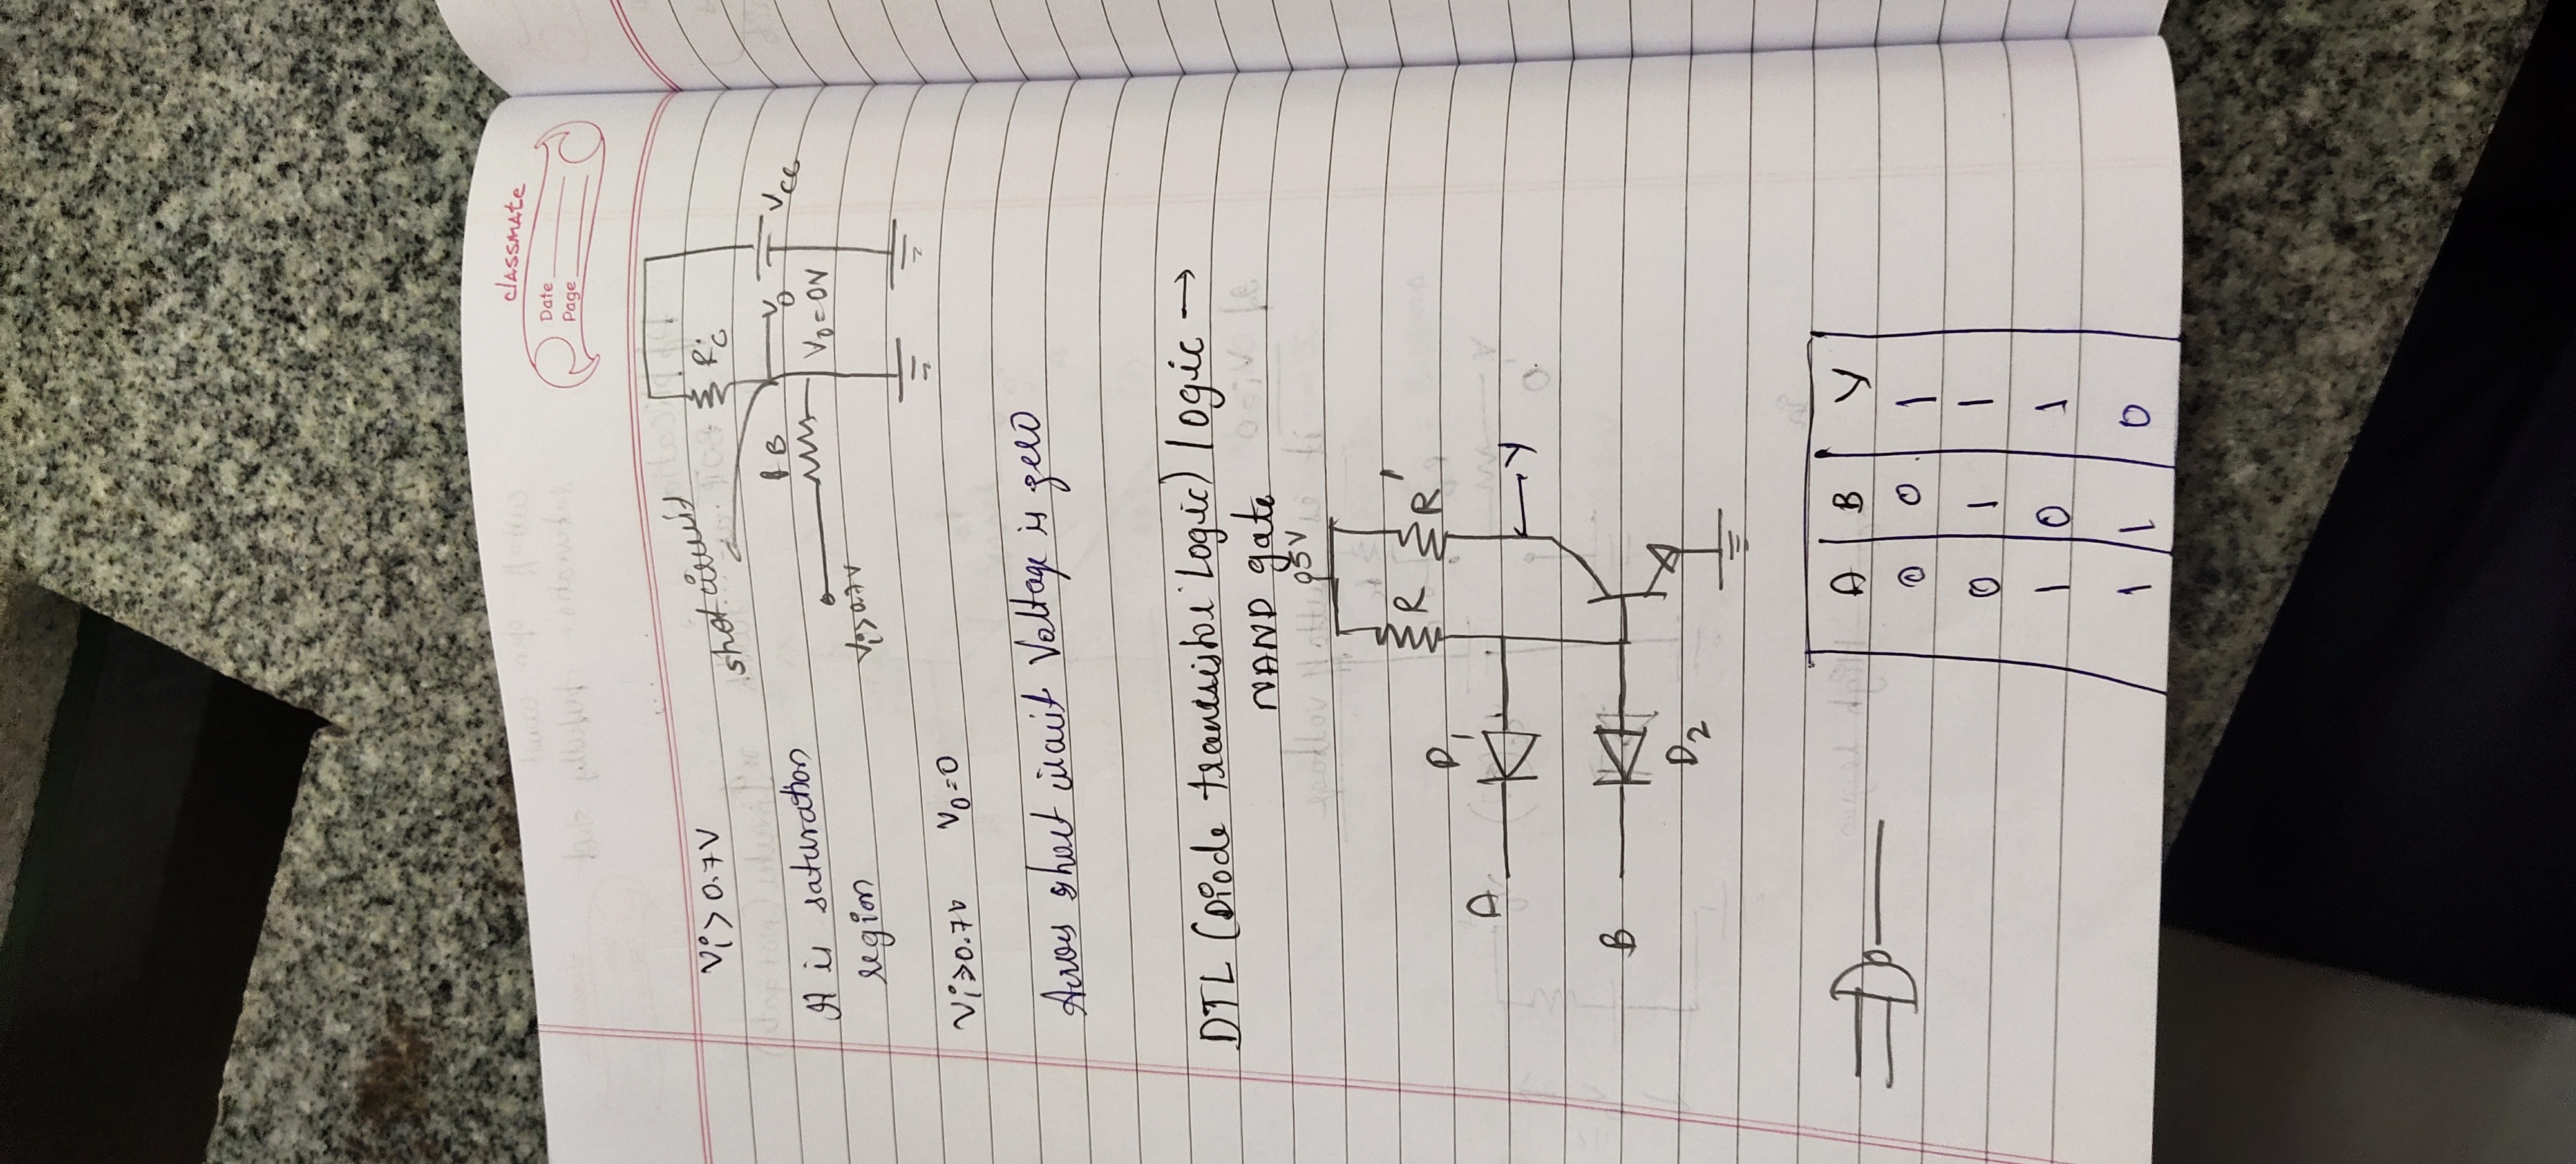 classmate
Date
Page
Vi > 0.7V
shot circuit
RC
It is saturation
region
B
Vo
VCC
Vo = 0V
Vi > 0.7V
Vi ≥ 0.7V Vo = 0
Across short circuit Voltage is zero
DTL (Diode transistor Logic) logic →
NAND gate
5V
R R'
D1
A
Y
B
D2
A B Y
0 0 1
0 1 1
1 0 1
1 1 0